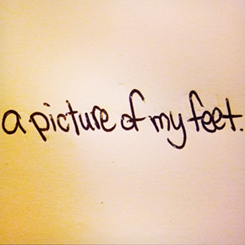 a picture of my feet.